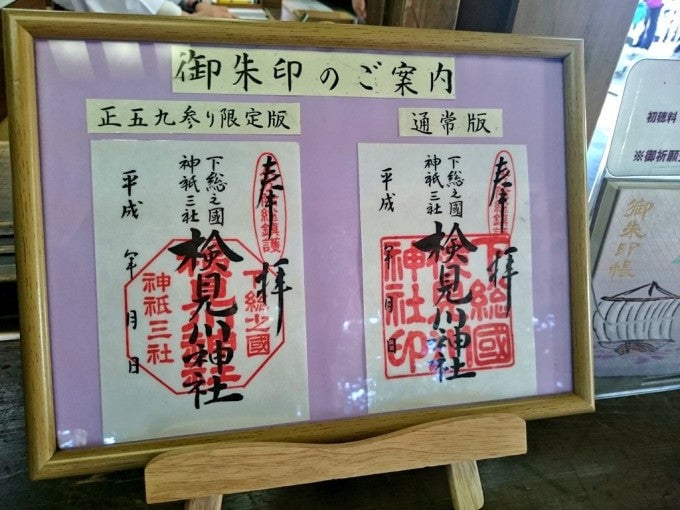 御朱印のご案内
正五九参り限定版
通常版
奉
拝
下総之國
神祇三社
検見川神社
平成　年　月　日
下総之國
神祇三社
奉
拝
下総之國
神祇三社
検見川神社
平成　年　月　日
下総國
神社印
初穂料
※御祈願
御朱印帳